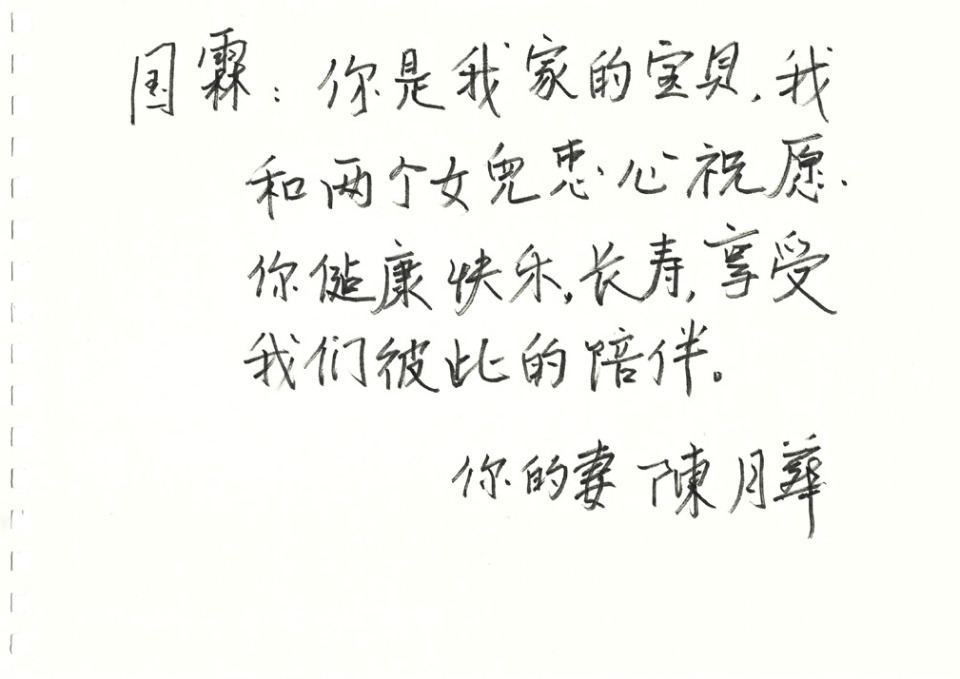 国霖：你是我家的宝贝，我
和两个女儿忠心祝愿.
你健康快乐，长寿，享受
我们彼此的陪伴。
你的妻 陳月華